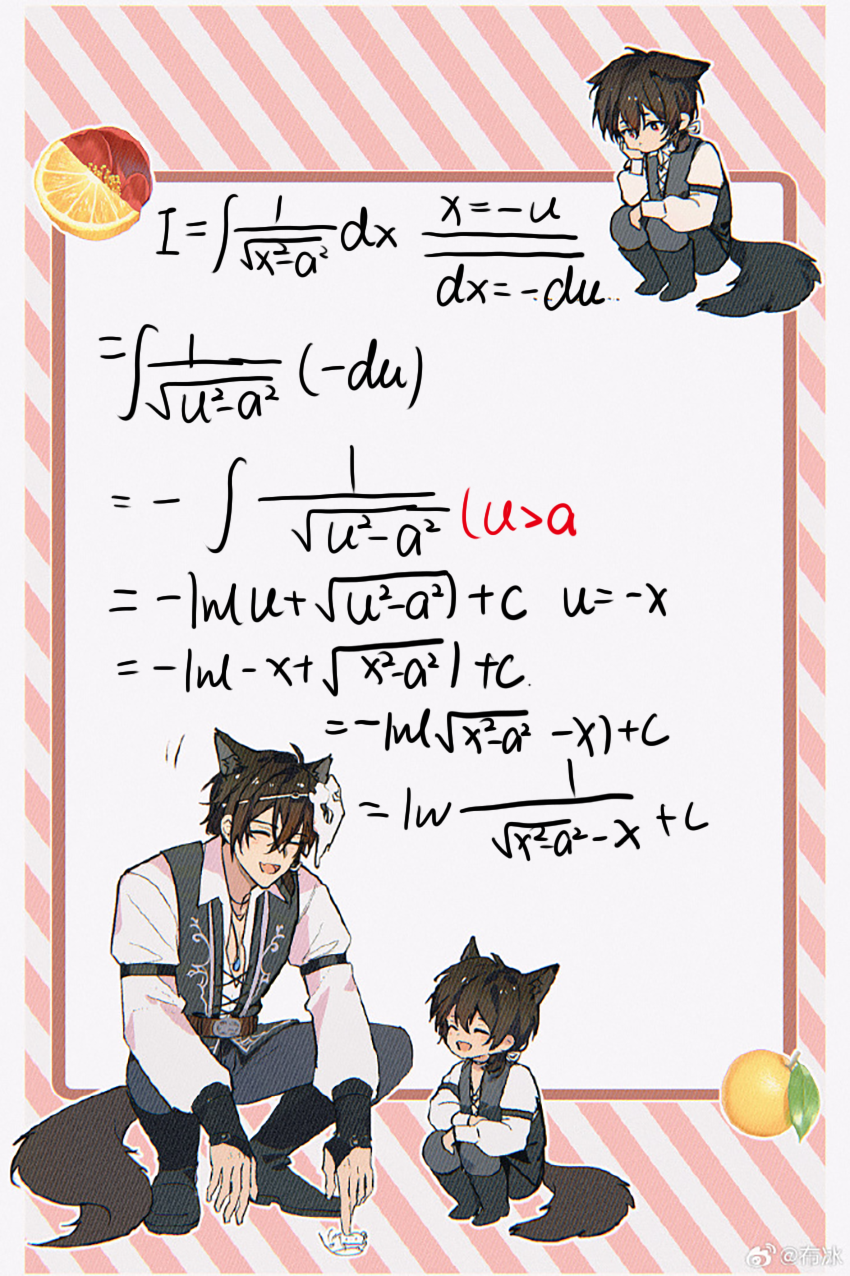 I = ∫ 1/√(x²-a²) dx x = -u
dx = -du
= ∫ 1/√(u²-a²) (-du)
= - ∫ 1/√(u²-a²) (u>a
= -ln(u+√(u²-a²))+C u=-x
= -ln(-x+√(x²-a²))+C
= -ln(√(x²-a²) -x)+C
= ln 1/(√(x²-a²)-x) +C
@布冰